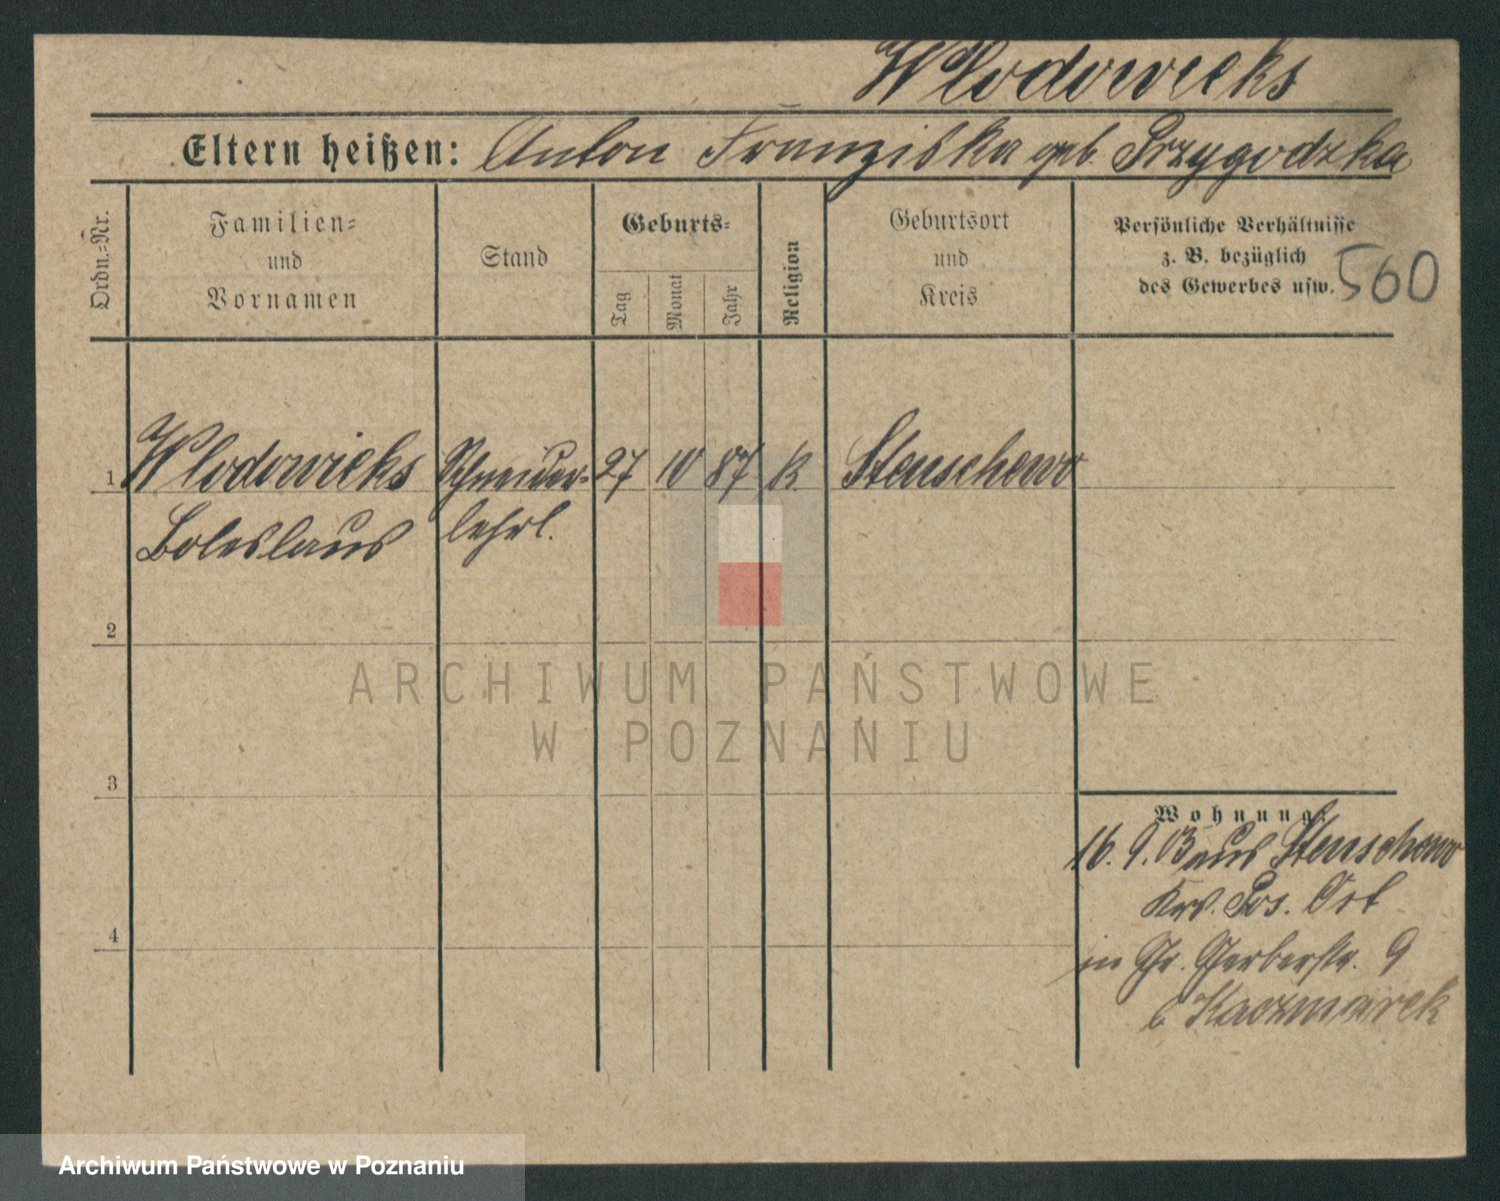 Wlodowieks
Eltern heißen: Anton Franziska geb. Przygodzka
Ordn.-Nr.
Familien-
und
Vornamen
Stand
Geburts-
Tag
Monat
Jahr
Religion
Geburtsort
und
Kreis
Persönliche Verhältnisse
z. B. bezüglich
des Gewerbes usw.
560
1 Wlodowieks Schneider- 27 10 87 K. Stenschewo
Boleslaus lehrl.
2
3
4
Wohnung:
16. 9. 03 aus Stenschewo
Krs. Pos. Ost
in Gr. Gerberstr. 9
b Kaczmarek
ARCHIWUM PAŃSTWOWE
W POZNANIU
Archiwum Państwowe w Poznaniu